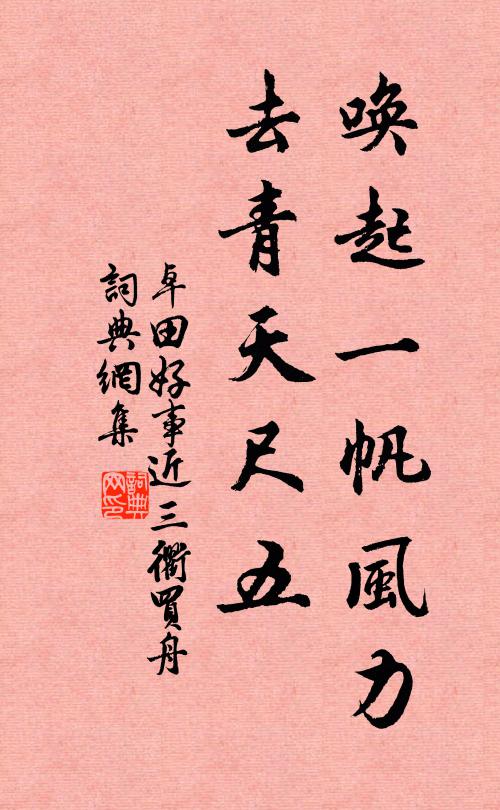 唤起一帆風力
去青天尺五
卓田好事近三衢買舟
詞典網集
詞典网印